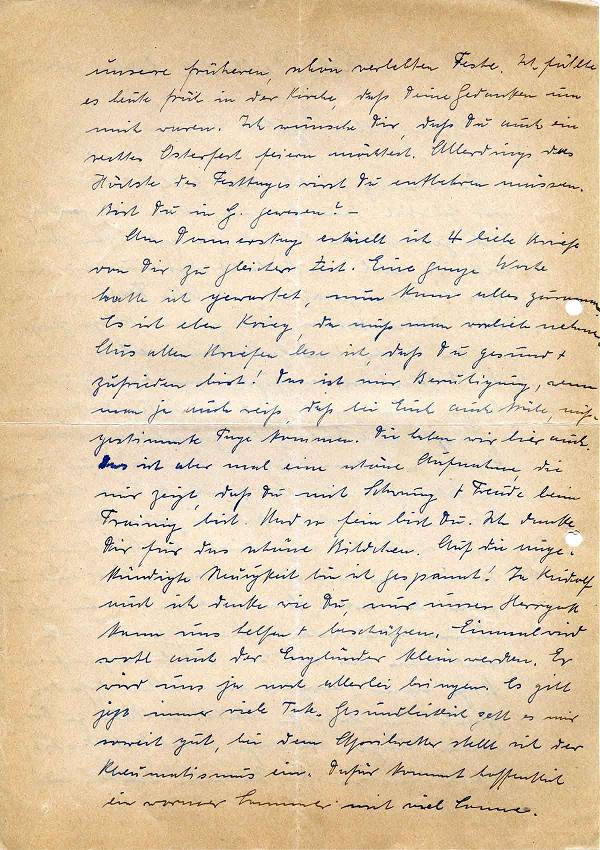 unsere früheren, schön verlebten Feste. Ich fühlte
es heute früh in der Kirche, daß Deine Gedanken um
mich waren. Ich wünsche Dir, daß Du auch ein
rechtes Osterfest feiern möchtest. Allerdings das
Höchste des Festtages wirst Du entbehren müssen.
Bist Du in G. gewesen? –
Am Donnerstag erhielt ich 4 liebe Briefe
von Dir zu gleicher Zeit. Eine ganze Woche
hatte ich gewartet, nun kam alles zusammen
Es ist eben Krieg, da muß man vorlieb nehmen.
Aus allen Briefen lese ich, daß Du gesund +
zufrieden bist! Das ist mir Beruhigung, wenn
man ja auch weiß, daß bei Euch auch trübe, miß-
gestimmte Tage kommen. Die haben wir hier auch.
Das ist aber mal eine schöne Aufnahme, die
mir zeigt, daß Du mit Schwung + Freude beim
Training bist. Und so fein bist Du. Ich danke
Dir für das schöne Bildchen. Auf die ange-
kündigte Neuigkeit bin ich gespannt! Ja Rudolf
auch ich denke wie Du, nur unser Herrgott
kann uns helfen + beschützen. Einmal wird
wohl auch der Engländer klein werden. Er
wird uns ja noch allerlei bringen. Es gibt
jetzt immer viele Tote. Gesundheitlich geht es mir
soweit gut, bei dem Aprilwetter stellt sich der
Rheumatismus ein. Dafür kommt hoffentlich
ein warmer Sommer mit viel Sonne.